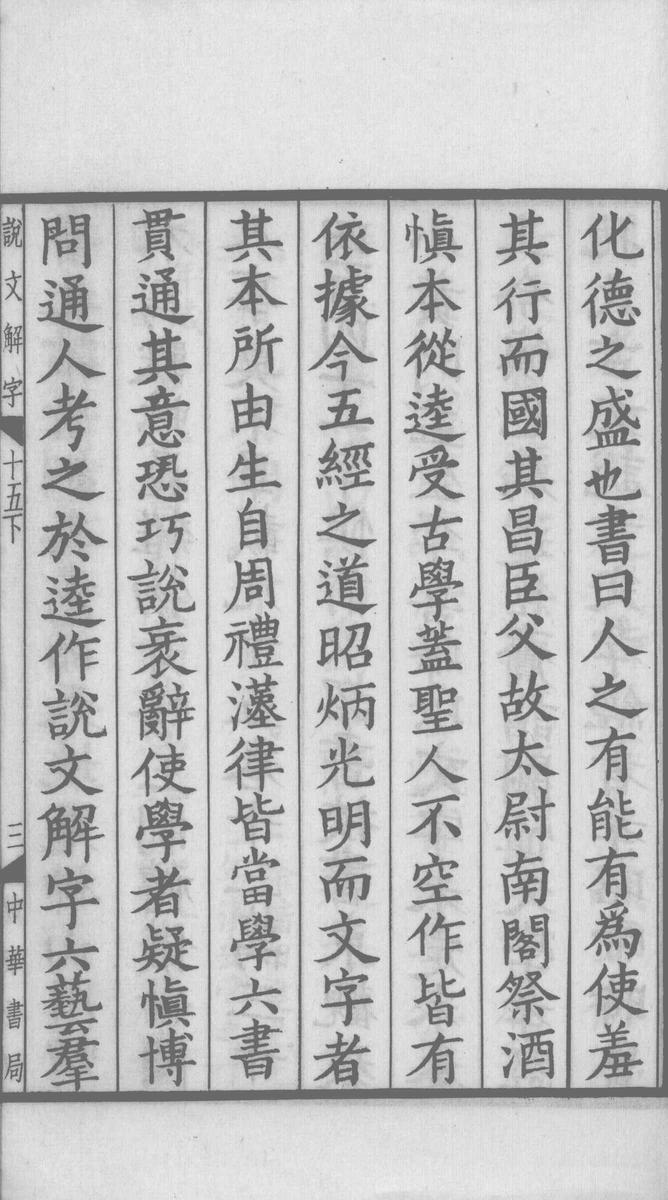 化德之盛也書曰人之有能有爲使羞
其行而國其昌臣父故太尉南閣祭酒
愼本從逵受古學蓋聖人不空作皆有
依據今五經之道昭炳光明而文字者
其本所由生自周禮漢律皆當學六書
貫通其意恐巧說衺辭使學者疑愼博
問通人考之於逵作說文解字六藝羣
說文解字
十五下
三
中華書局